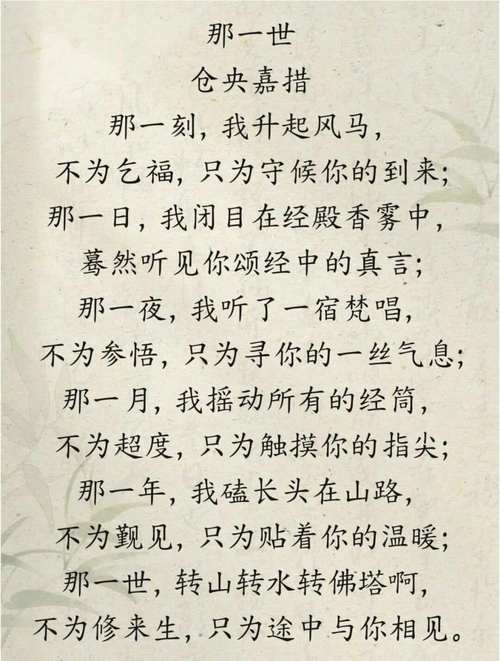 那一世
仓央嘉措
那一刻，我升起风马，
不为乞福，只为守候你的到来；
那一日，我闭目在经殿香雾中，
蓦然听见你颂经中的真言；
那一夜，我听了一宿梵唱，
不为参悟，只为寻你的一丝气息；
那一月，我摇动所有的经筒，
不为超度，只为触摸你的指尖；
那一年，我磕长头在山路，
不为觐见，只为贴着你的温暖；
那一世，转山转水转佛塔啊，
不为修来生，只为途中与你相见。